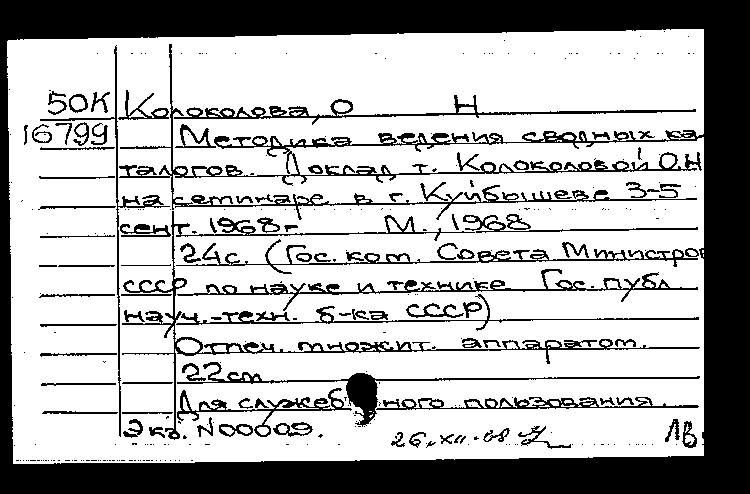 50К Колоколова, О Н
16799 Методика ведения сводных ка-
талогов. Доклад т. Колоколовой О.Н
на семинаре в г. Куйбышеве 3-5
сент. 1968г М., 1968
24с. (Гос. ком. Совета Министров
СССР по науке и технике Гос. публ
науч.-техн. б-ка СССР)
Отпеч. множит. аппаратом.
22см
Для служебного пользования.
Экз. N00009.
26.XII.68